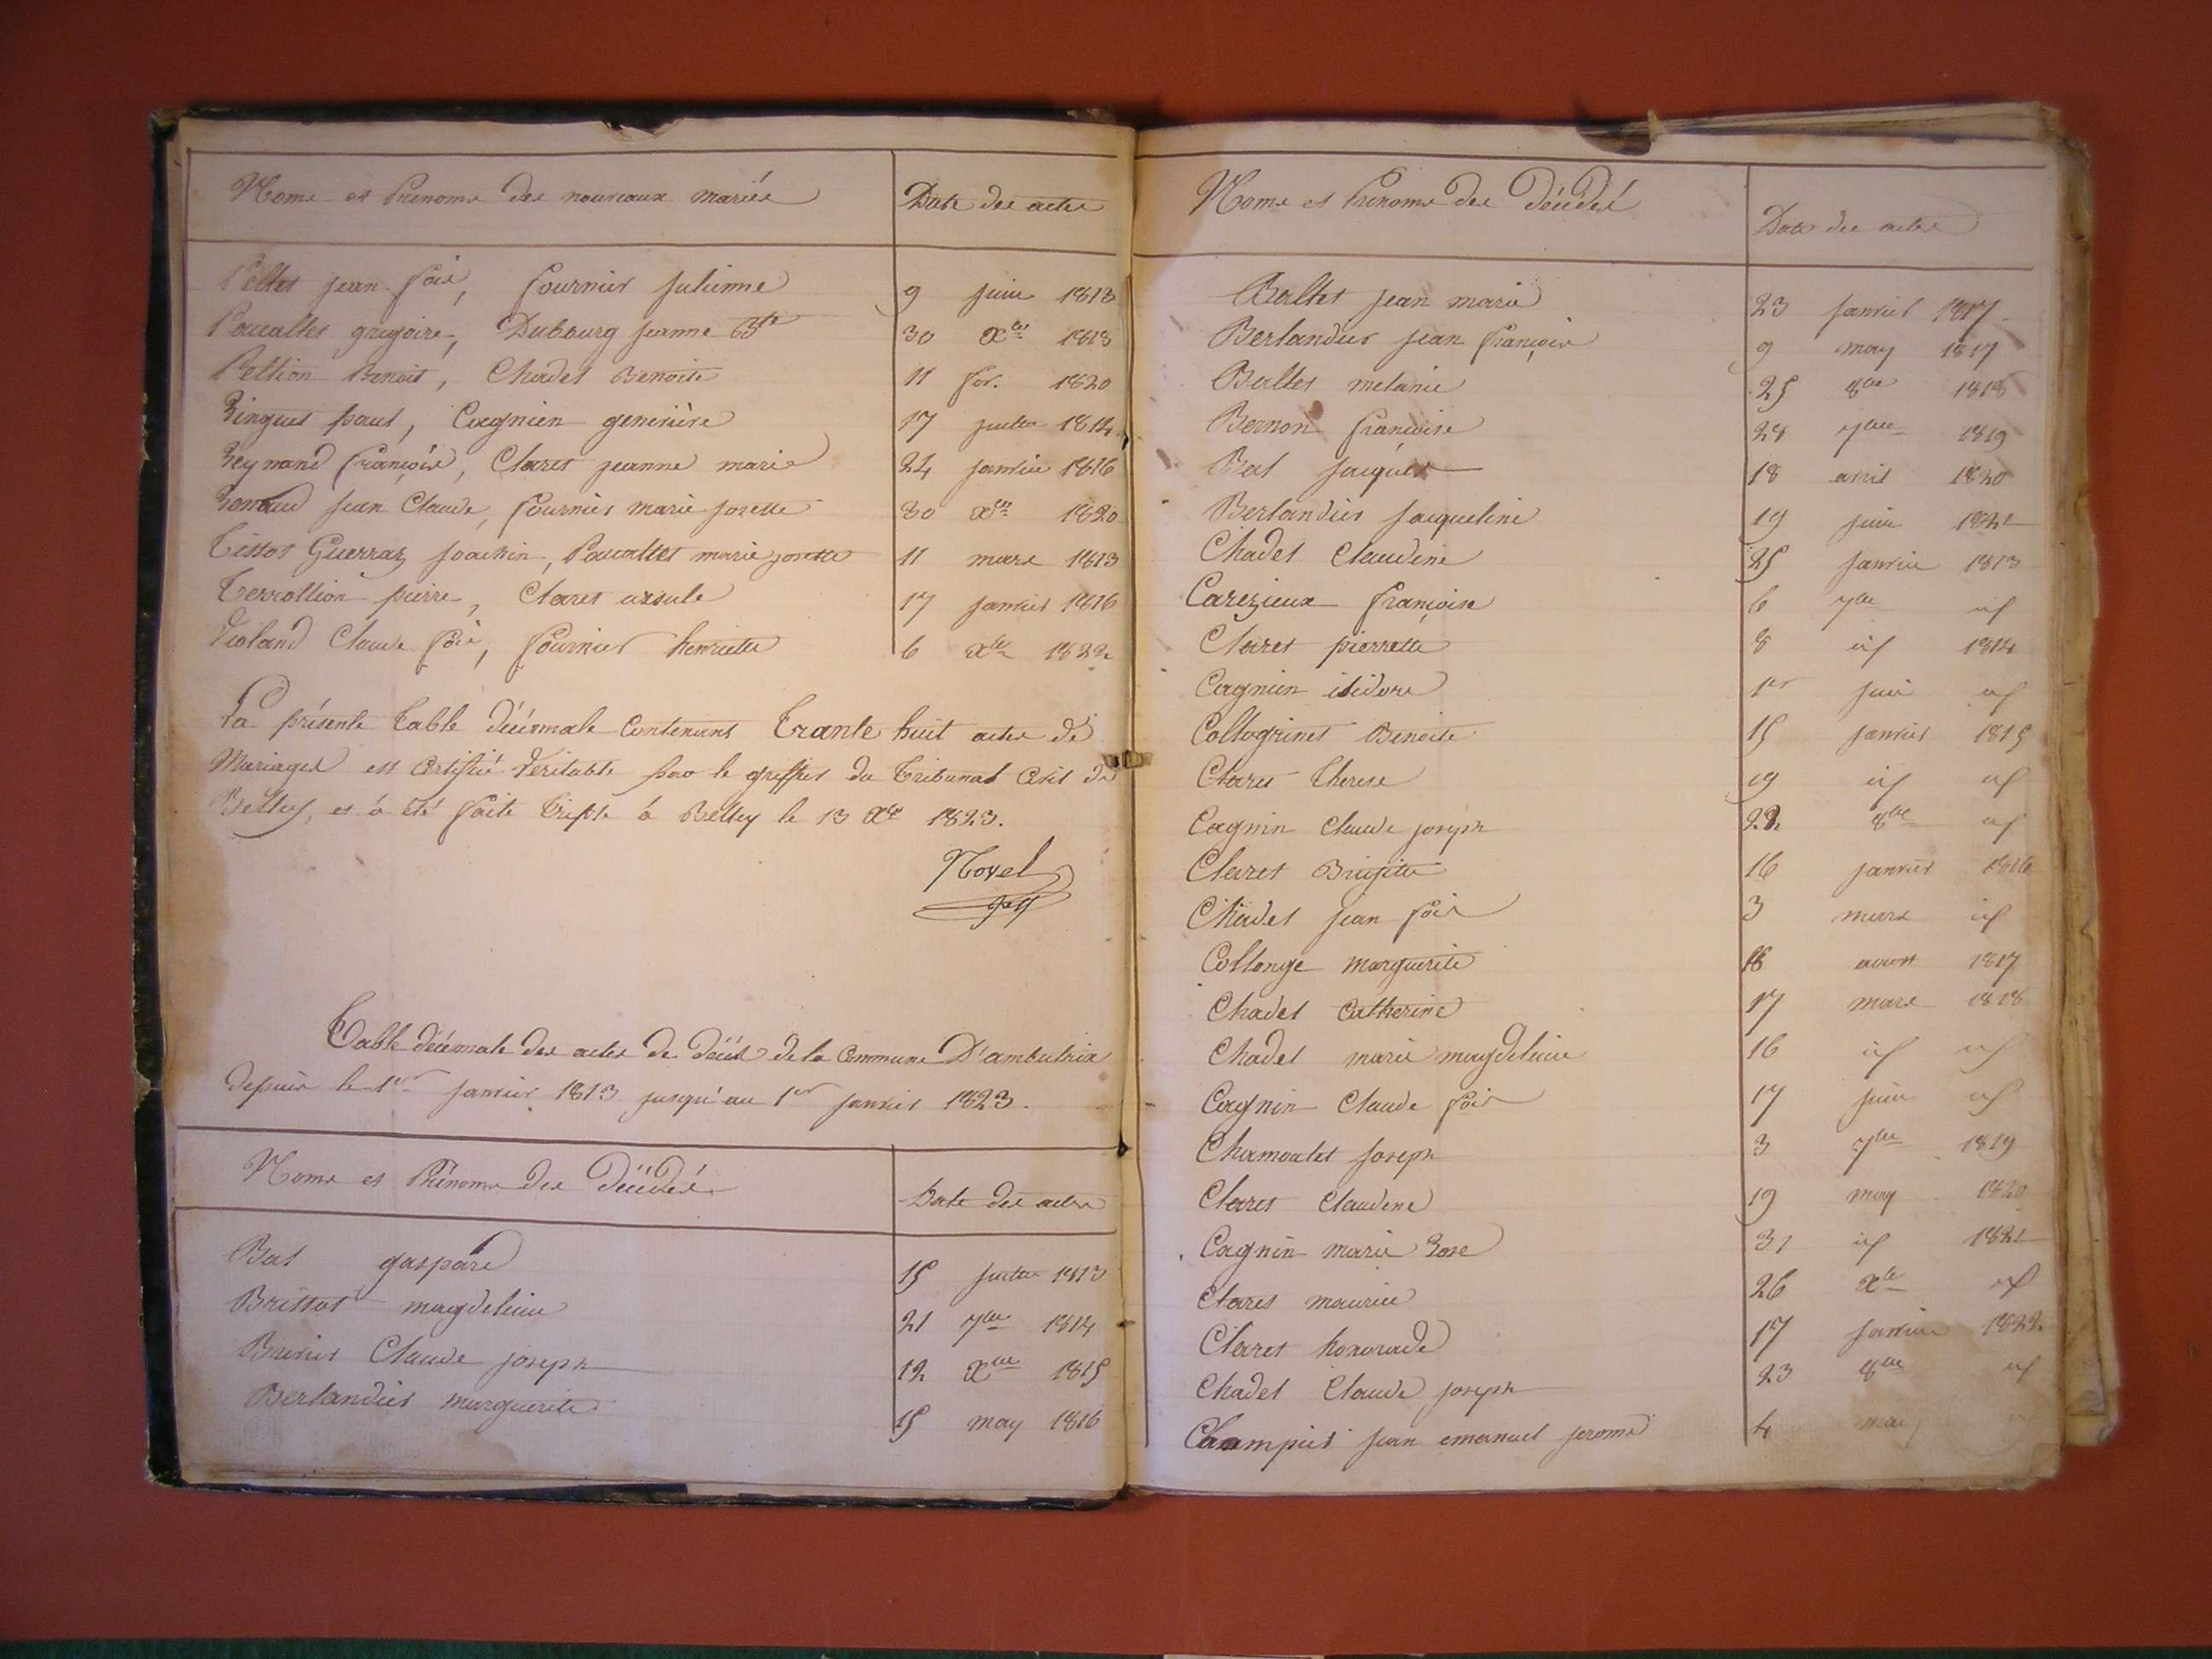 Noms et Prénoms des nouveaux mariés Date des actes
Pellet jean fois, fournier Julienne 9 juin 1818
Pauvallet gregoire, Dubourg jeanne Bte 30 Xbre 1818
Pettion Benoit, Chadel Benoite 11 fer. 1820
Ringuet paul, Cagnien genevière 17 juillet 1814
Reynand françois, Claret jeanne marie 24 janvier 1816
Renaud jean Claude, fournier marie josette 30 Xbre 1820
Tissot Guerraz joachin, Pauvallet marie josette 11 mars 1813
Terrollion pierre, Claret ursule 17 janvier 1816
Violand Claude fois, fournier henriette 6 Xbre 1822
La présente table décénnale contenant trante huit actes de
Mariages est certifié véritable par le greffier du tribunal civil de
Belley, et à été faite triple à Belley le 13 Xbre 1823.
Novel
Table décénnale des actes de décès de la commune D'ambutrix
depuis le 1er janvier 1813 jusqu'au 1er janvier 1823.
Noms et Prénoms des Décédés Date des actes
Bal gaspard 15 juillet 1813
Brissot magdeleine 21 7bre 1814
Claude joseph 12 Xbre 1815
Berlandier marguerite 15 may 1816
Noms et Prénoms des Décédés Date des actes
Baltet jean marie 23 janvier 1817
Berlandier jean françois 9 may 1817
Baltet melanie 25 8bre 1818
Bernon françoise 28 7bre 1819
Bal jacques 18 avril 1820
Berlandier jacqueline 19 juin 1821
Chadel Claudine 25 janvier 1813
Carezieux françoise 6 7bre id
Claret pierrette 8 id 1814
Cagnien isidore 1er juin id
Collogrinet Benoite 15 janvier 1815
Claret therese 19 id id
Cagnin Claude joseph 22 8bre id
Claret Brigitte 16 janvier 1816
Chadel jean fois 3 mars id
Collonge marguerite 18 aoust 1817
Chadel catherine 17 mars 1818
Chadel marie magdeleine 16 id id
Cagnin Claude fois 17 juin id
Chamoulet joseph 3 7bre 1819
Claret Claudine 19 may 1820
Cagnin marie Rose 31 id 1821
Claret maurice 26 Xbre id
Claret honorade 17 janvier 1822
Chadel Claude joseph 23 8bre id
Champier jean emanuel jerome 4 may